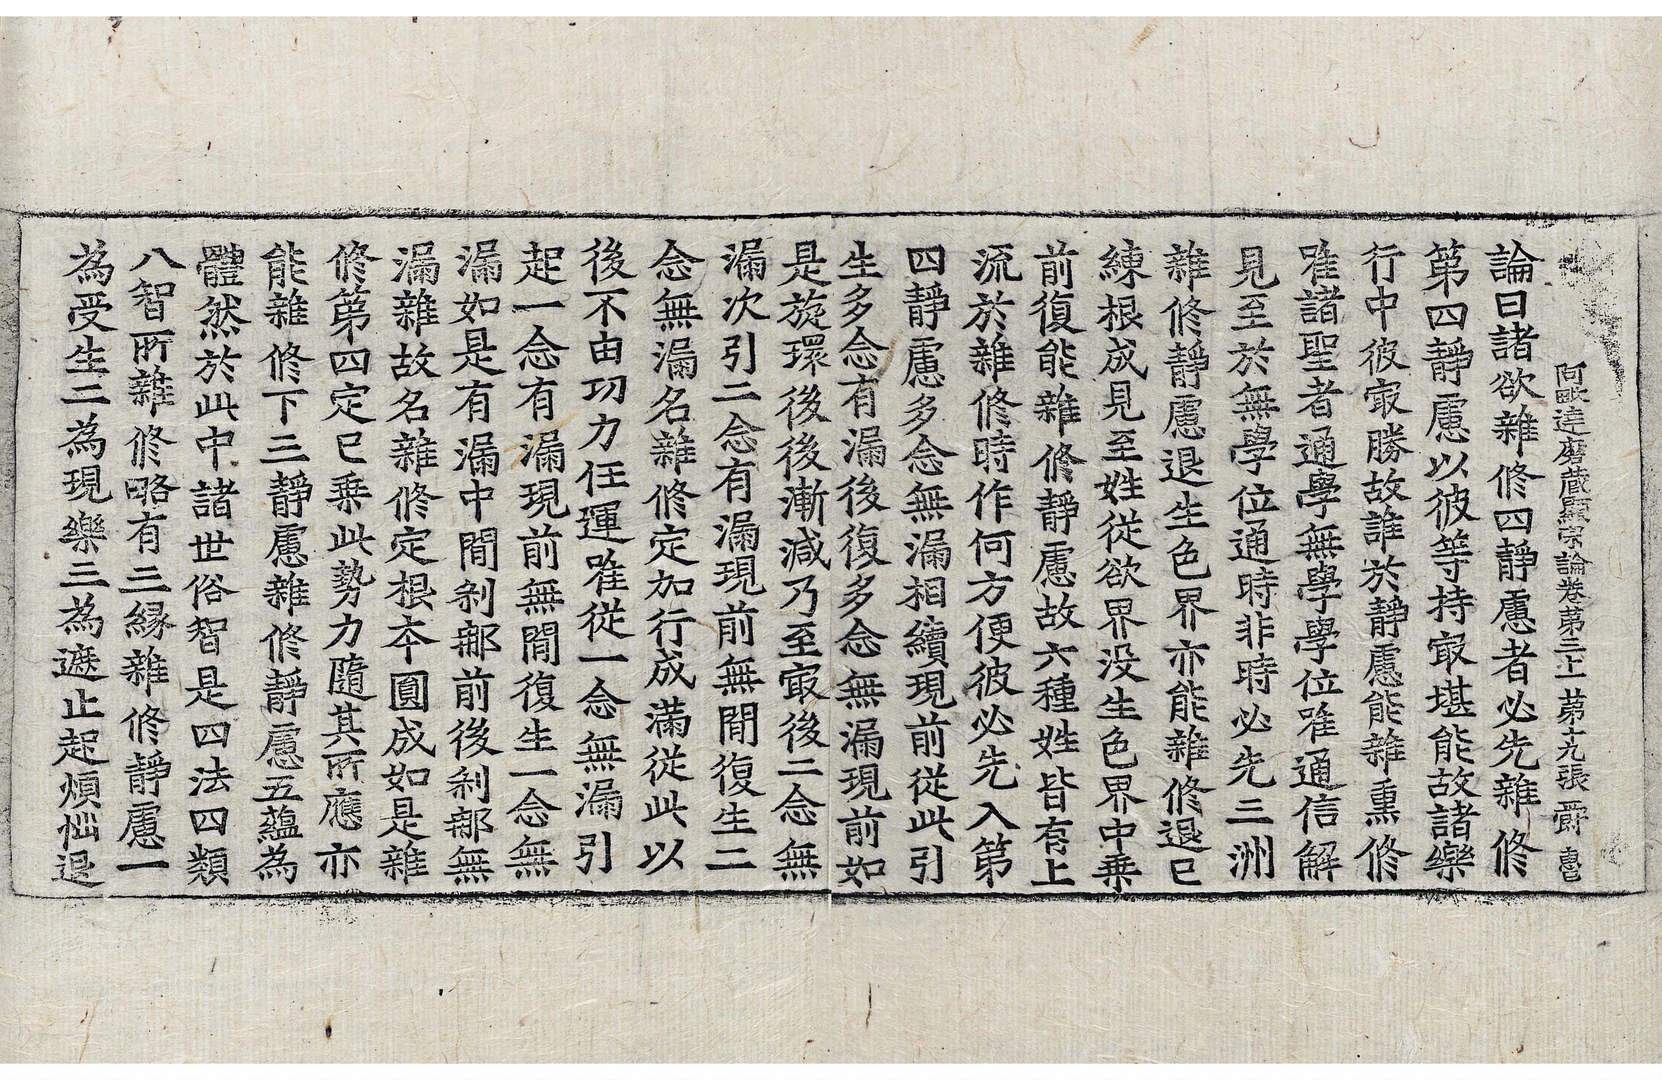 阿毗達磨藏顯宗論卷第三上 第十九張 爵
論曰諸欲雜修四靜慮者必先雜修
第四靜慮以彼等持㝡堪能故諸樂
行中彼㝡勝故誰於靜慮能雜熏修
唯諸聖者通學無學學位唯通信解
見至於無學位通時非時必先三洲
雜修靜慮退生色界亦能雜修退已
練根成見至姓從欲界没生色界中乗
前復能雜修靜慮故六種姓皆有上
流於雜修時作何方便彼必先入第
四靜慮多念無漏相續現前從此引
生多念有漏後復多念無漏現前如
是旋環後後漸減乃至㝡後二念無
漏次引二念有漏現前無間復生二
念無漏名雜修定加行成滿從此以
後不由功力任運唯從一念無漏引
起一念有漏現前無間復生一念無
漏如是有漏中間剎那前後剎那無
漏雜故名雜修定根本圓成如是雜
修第四定已乗此勢力隨其所應亦
能雜修下三靜慮雜修靜慮五蘊為
體然於此中諸世俗智是四法四類
八智所雜修略有三縁雜修靜慮一
為受生二為現樂三為遮止起煩惱退